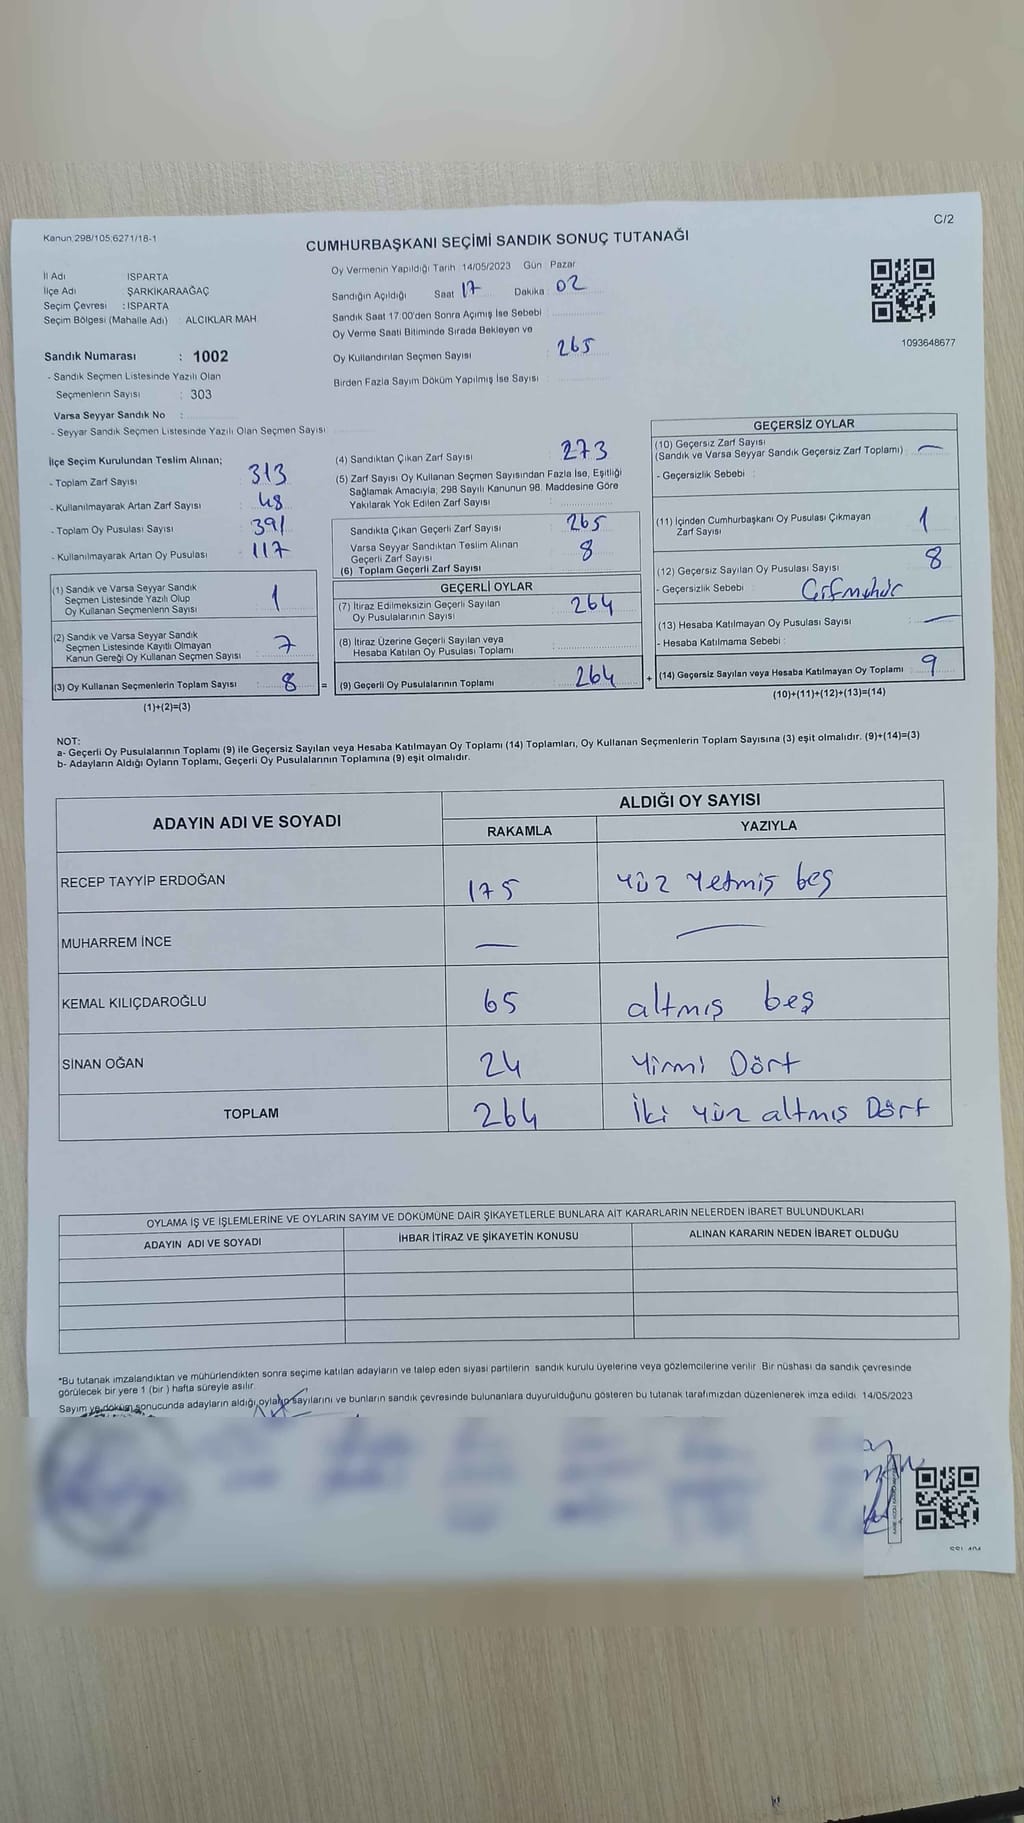 Kanun 298/105,6271/18-1
C/2
CUMHURBAŞKANI SEÇİMİ SANDIK SONUÇ TUTANAĞI
İl Adı ISPARTA
İlçe Adı ŞARKİKARAAĞAÇ
Seçim Çevresi : ISPARTA
Seçim Bölgesi (Mahalle Adı) ALCIKLAR MAH.
Sandık Numarası : 1002
- Sandık Seçmen Listesinde Yazılı Olan
Seçmenlerin Sayısı : 303
Varsa Seyyar Sandık No :
- Seyyar Sandık Seçmen Listesinde Yazılı Olan Seçmen Sayısı
Oy Vermenin Yapıldığı Tarih 14/05/2023 Gün Pazar
Sandığın Açıldığı Saat 17 Dakika 02
Sandık Saat 17 00'den Sonra Açımış İse Sebebi
Oy Verme Saati Bitiminde Sırada Bekleyen ve
Oy Kullandırılan Seçmen Sayısı : 265
Birden Fazla Sayım Döküm Yapılmış İse Sayısı
1093648677
İlçe Seçim Kurulundan Teslim Alınan;
- Toplam Zarf Sayısı 313
- Kullanılmayarak Artan Zarf Sayısı 48
- Toplam Oy Pusulası Sayısı 391
- Kullanılmayarak Artan Oy Pusulası 117
(1) Sandık ve Varsa Seyyar Sandık
Seçmen Listesinde Yazılı Olup
Oy Kullanan Seçmenlerin Sayısı 1
(2) Sandık ve Varsa Seyyar Sandık
Seçmen Listesinde Kayıtlı Olmayan
Kanun Gereği Oy Kullanan Seçmen Sayısı 7
(3) Oy Kullanan Seçmenlerin Toplam Sayısı : 8 =
(1)+(2)=(3)
(4) Sandıktan Çıkan Zarf Sayısı : 273
(5) Zarf Sayısı Oy Kullanan Seçmen Sayısından Fazla İse, Eşitliği
Sağlamak Amacıyla, 298 Sayılı Kanunun 98. Maddesine Göre
Yakılarak Yok Edilen Zarf Sayısı
Sandıkta Çıkan Geçerli Zarf Sayısı 265
Varsa Seyyar Sandıktan Teslim Alınan
Geçerli Zarf Sayısı 8
(6) Toplam Geçerli Zarf Sayısı
GEÇERLİ OYLAR
(7) İtiraz Edilmeksizin Geçerli Sayılan
Oy Pusulalarının Sayısı 264
(8) İtiraz Üzerine Geçerli Sayılan veya
Hesaba Katılan Oy Pusulası Toplamı
(9) Geçerli Oy Pusulalarının Toplamı 264 +
GEÇERSİZ OYLAR
(10) Geçersiz Zarf Sayısı
(Sandık ve Varsa Seyyar Sandık Geçersiz Zarf Toplamı) —
- Geçersizlik Sebebi :
(11) İçinden Cumhurbaşkanı Oy Pusulası Çıkmayan
Zarf Sayısı 1
(12) Geçersiz Sayılan Oy Pusulası Sayısı 8
- Geçersizlik Sebebi :
(13) Hesaba Katılmayan Oy Pusulası Sayısı —
- Hesaba Katılmama Sebebi :
(14) Geçersiz Sayılan veya Hesaba Katılmayan Oy Toplamı 9
(10)+(11)+(12)+(13)=(14)
NOT:
a- Geçerli Oy Pusulalarının Toplamı (9) ile Geçersiz Sayılan veya Hesaba Katılmayan Oy Toplamı (14) Toplamları, Oy Kullanan Seçmenlerin Toplam Sayısına (3) eşit olmalıdır. (9)+(14)=(3)
b- Adayların Aldığı Oyların Toplamı, Geçerli Oy Pusulalarının Toplamına (9) eşit olmalıdır.
ADAYIN ADI VE SOYADI ALDIĞI OY SAYISI
RAKAMLA YAZIYLA
RECEP TAYYİP ERDOĞAN 175 yüz yetmiş beş
MUHARREM İNCE — —
KEMAL KILIÇDAROĞLU 65 altmış beş
SİNAN OĞAN 24 yirmi Dört
TOPLAM 264 İki yüz altmış Dört
OYLAMA İŞ VE İŞLEMLERİNE VE OYLARIN SAYIM VE DÖKÜMÜNE DAİR ŞİKAYETLERLE BUNLARA AİT KARARLARIN NELERDEN İBARET BULUNDUKLARI
ADAYIN ADI VE SOYADI İHBAR İTİRAZ VE ŞİKAYETİN KONUSU ALINAN KARARIN NEDEN İBARET OLDUĞU
*Bu tutanak imzalandıktan ve mühürlendikten sonra seçime katılan adayların ve talep eden siyasi partilerin sandık kurulu üyelerine veya gözlemcilerine verilir Bir nüshası da sandık çevresinde
görülecek bir yere 1 (bir) hafta süreyle asılır.
Sayım ve döküm sonucunda adayların aldığı oyların sayılarını ve bunların sandık çevresinde bulunanlara duyurulduğunu gösteren bu tutanak tarafımızdan düzenlenerek imza edildi. 14/05/2023